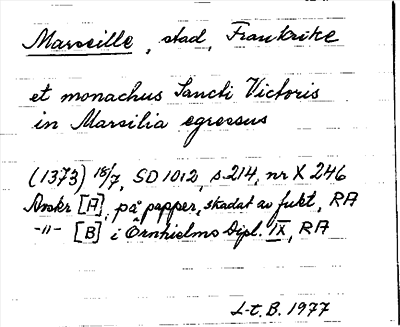 Marseille, stad, Frankrike
et monachus Sancti Victoris
in Marsilia egressus
(1373) 18/7, SD 1012, s. 214, nr X 246
Avskr [A], på papper, skadat av fukt, RA
-"- [B] i Örnhielms Dipl. IX, RA
L-t. B. 1977